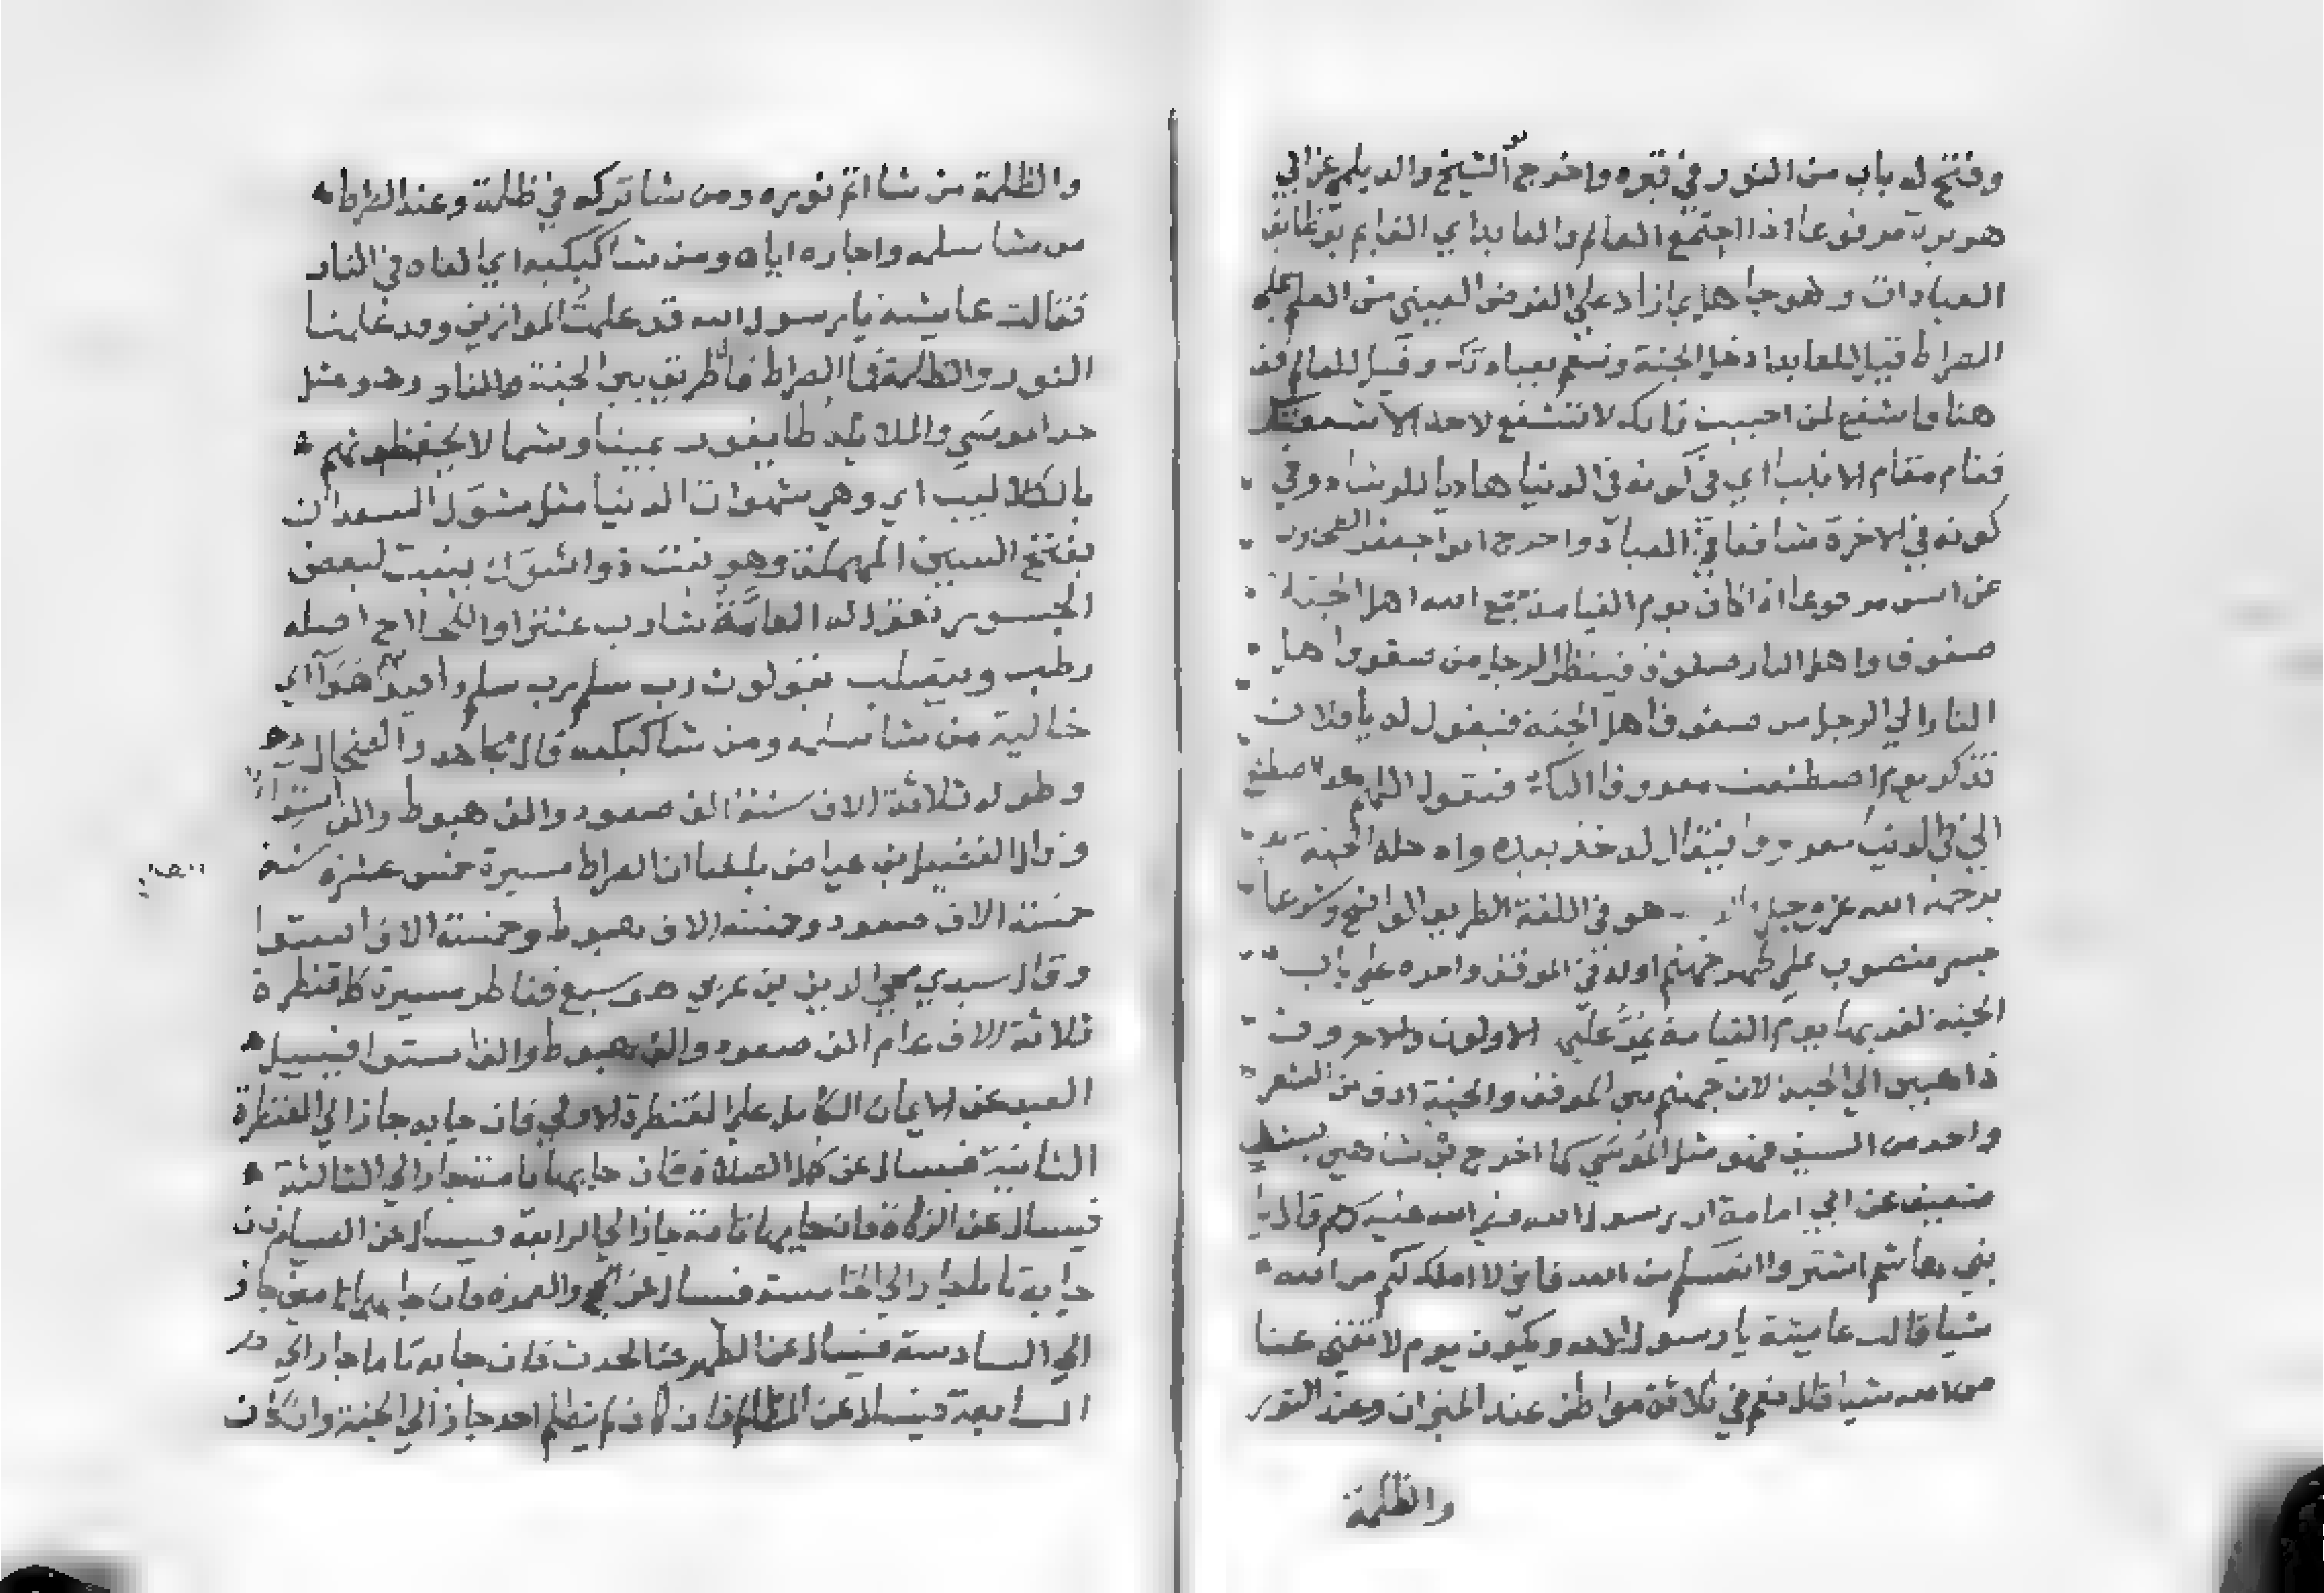 وفتح له باب من النور في قبره واخرج ابو الشيخ والديلمي عن ابي
هريرة مرفوعا اذا اجتمع العالم والعابد اي القايم بوظايف
العبادات وهو جاهل اي زاد علي الفرض العيني من العلم علي
الصراط قيل للعابد ادخل الجنة وتنعم بعبادتك وقيل للعالم قف
هنا واشفع لمن احببت فانك لا تشفع لاحد الا شفعت
فقام مقام الانبيا اي في كونه في الدنيا هاديا للرشاد وفي
كونه في الاخرة شافعا في العباد واخرج ابو جعفر
عن انس مرفوعا اذا كان يوم القيامة جمع الله اهل الجنة
صفوفا واهل النار صفوفا فينظر الرجل من صفوف اهل
النار الي الرجل من صفوف اهل الجنة فيقول له يا فلان
تذكر يوم اصطنعت معروفا اليك فيقول اللهم هذا اصطنع
الي في الدنيا معروفا فيقال له خذ بيده وادخله الجنة
برحمة الله عز وجل هو في اللغة الطريق الواضح وشرعا
جسر منصوب علي ظهر جهنم اوله في الموقف واخره علي باب
الجنة يوم القيامة يمر عليه الاولون والاخرون
ذاهبين الي الجنة لان جهنم بين الموقف والجنة ادق من الشعر
واحد من السيف فهو مثل الموسي كما اخرج بن شاهين بسند
ضعيف عن ابي امامة ان رسول الله صلي الله عليه وسلم قال يا
بني هاشم اشتروا انفسكم من الله فاني لا املك لكم من الله
شيا قالت عايشة يا رسول الله ويكون يوم لا تغني عنا
من الله شيا قال نعم في ثلاثة مواطن عند الميزان وعند النور
والظلمة
والظلمة من شا اتم نوره ومن شا تركه في ظلمة وعند الصراط
من شا سلمه واجاره اياه ومن شا كبكبه اي القاه في النار
فقالت عايشة يا رسول الله قد علمت الموازين وقد علمنا
النور والظلمة فما الصراط قال طريق بين الجنة والنار وهو مثل
حد الموسي والملايكة طايفون يمينا وشمالا يخطفونهم
بالكلاليب اي وهي شهوات الدنيا مثل شوك السعدان
بفتح السين المهملة وهو نبت ذو اشوك ينبت لبعض
الجسور تقول له العامة شارب عنتر اوا اصله
رطب ويتصلب يقولون رب سلم رب سلم وافيدتهم هوا اي
خالية من شا سلمه ومن شا كبكبه قال مجاهد والضحاك
وطوله ثلاثة الاف سنة الف صعود والف هبوط والف استوا
وقال الفضيل بن عياض بلغنا ان الصراط مسيرة خمس عشرة سنة
خمسة الاف صعود وخمسة الاف هبوط وخمسة الاف استوا
وقال سيدي محيي الدين بن عربي هي سبع قناطر مسيرة كل قنطرة
ثلاثة الاف عام الف صعود والف هبوط والف استوا فيسيل
العبد عن الايمان الكامل علي القنطرة الاولي فان جا به جاز الي القنطرة
الثانية فيسال عن كل الصلاة فان جا بها تامة جاز الي الثالثة
فيسال عن الزكاة فان جا بها تامة جاز الي الرابعة فيسال عن الصيام فان
جا به تاما جاز الي الخامسة فيسال عن الحج والعمرة فان جا بهما تامين جاز
الي السادسة فيسال عن الطهر من الحدث فان جا به تاما جاز الي
السابعة فيسال عن المظالم فان كان لم يظلم احد جاز الي الجنة وان كان